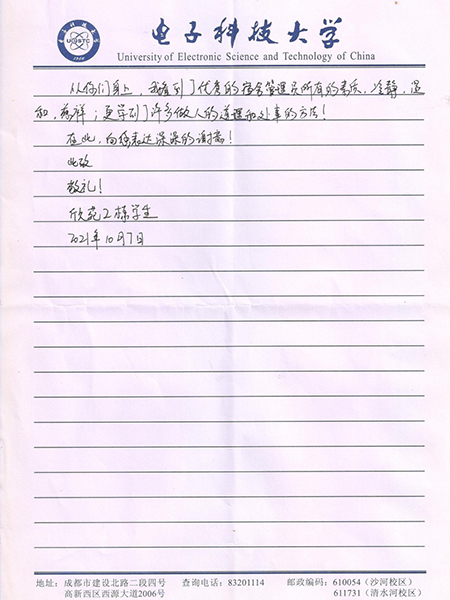 电子科技大学
University of Electronic Science and Technology of China
UESTC
1956
从你们身上，我看到了优秀的宿舍管理员所有的素质，冷静，温
和，慈祥；更学到了许多做人的道理和处事的方法！
在此，向您表达深深的谢意！
此致
敬礼！
欣苑2栋学生
2021年10月7日
地址：成都市建设北路二段四号 查询电话：83201114 邮政编码：610054（沙河校区）
高新西区西源大道2006号 611731（清水河校区）